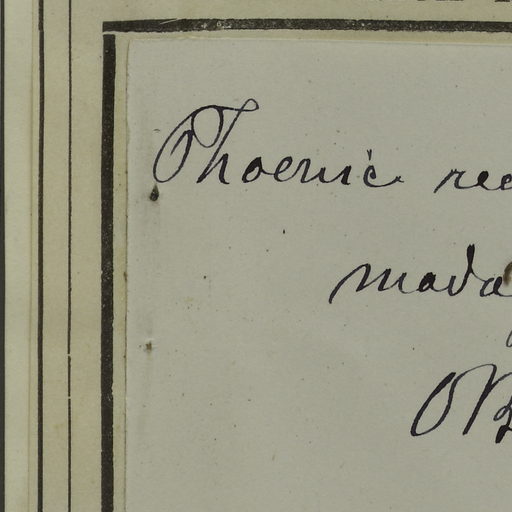 Phoenix rec
mada
OB